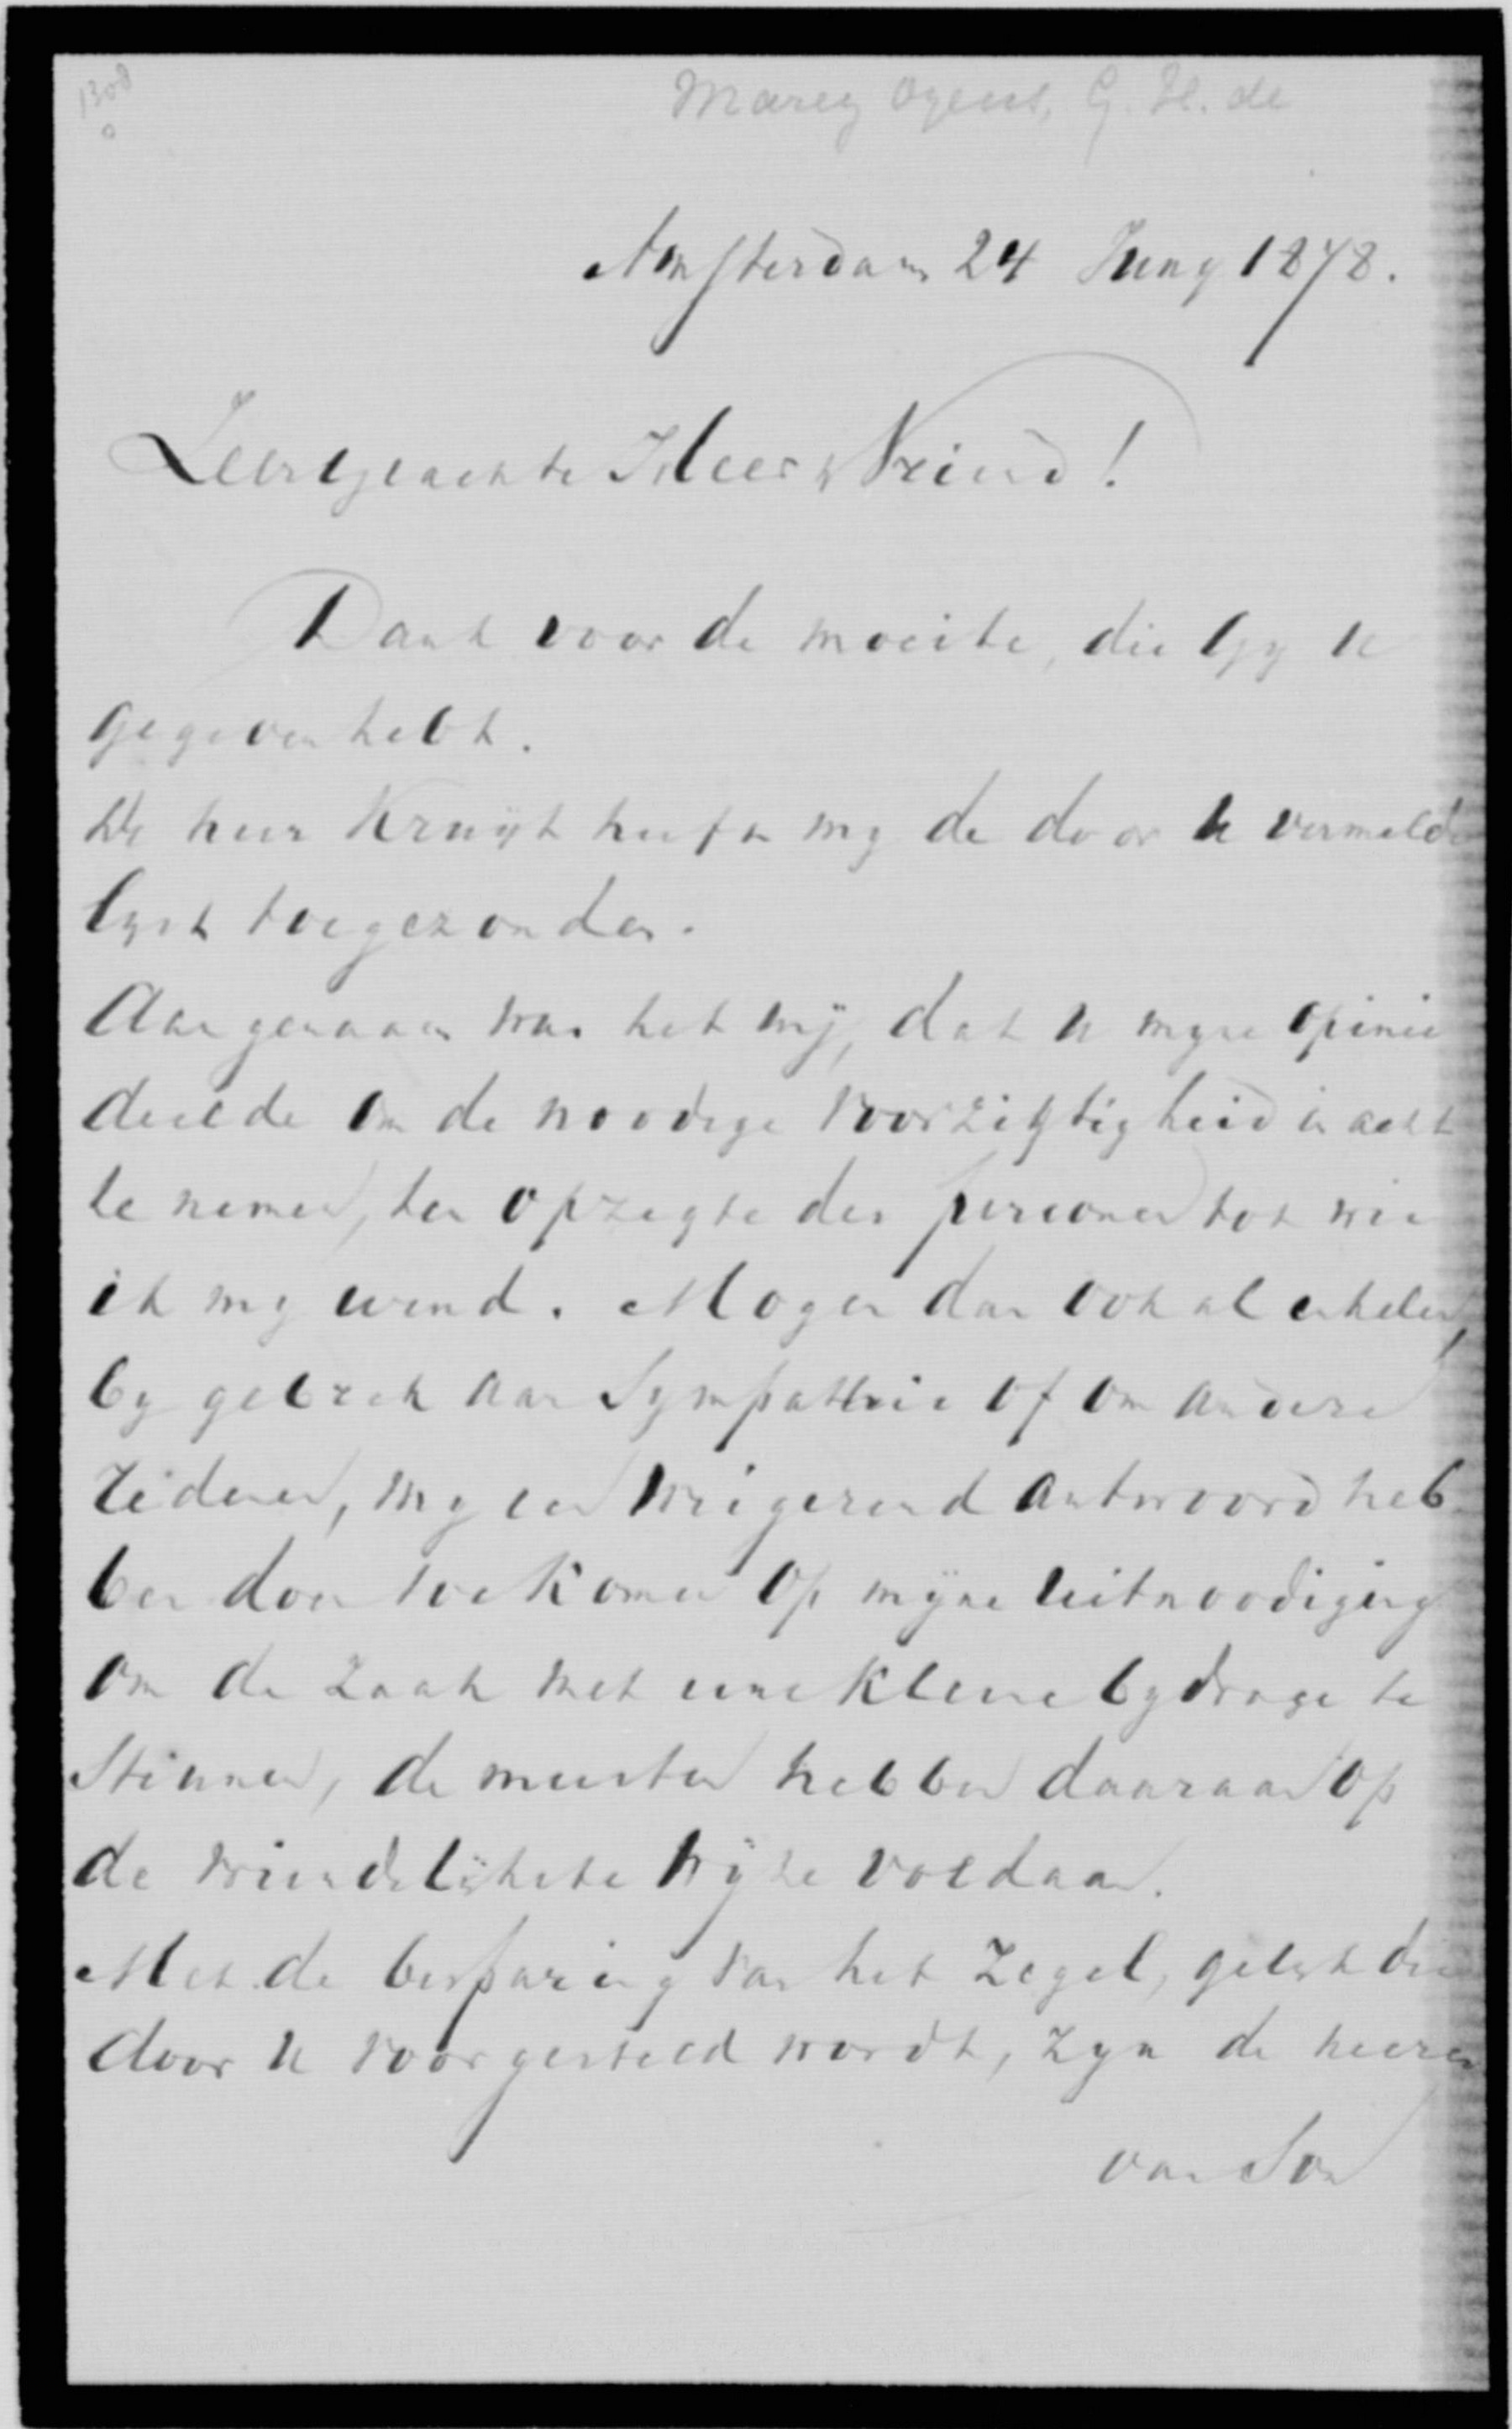 1308
Marez Oyens, G. H. de
Amsterdam 24 Juny 1878.
Zeergeachte Heer & Vriend!
Dank voor de moeite, die Gy U
gegeven hebt.
De heer Kruijt heeft my de door U vermelde
lyst toegezonden.
Aangenaam was het mij, dat U myne opinie
deelde om de noodige voorzigtigheid in acht
te nemen, ten opzegte der personen tot wie
ik my wend. Mogen dan ook al enkelen,
by gebrek aan Sympathie of om andere
redenen, my een weigerend antwoord heb
ben doen toekomen op mijne uitnoodiging
om de zaak met eene kleine bydrage te
steunen, de meesten hebben daaraan op
de vriendelijkste wijze voldaan.
Met de besparing van het Zegel, gelyk die
door U voorgesteld wordt, zyn de heeren
van Son